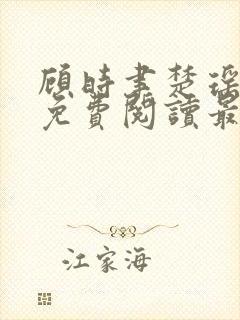 顾時書楚瑶
免費閱讀最
江家海